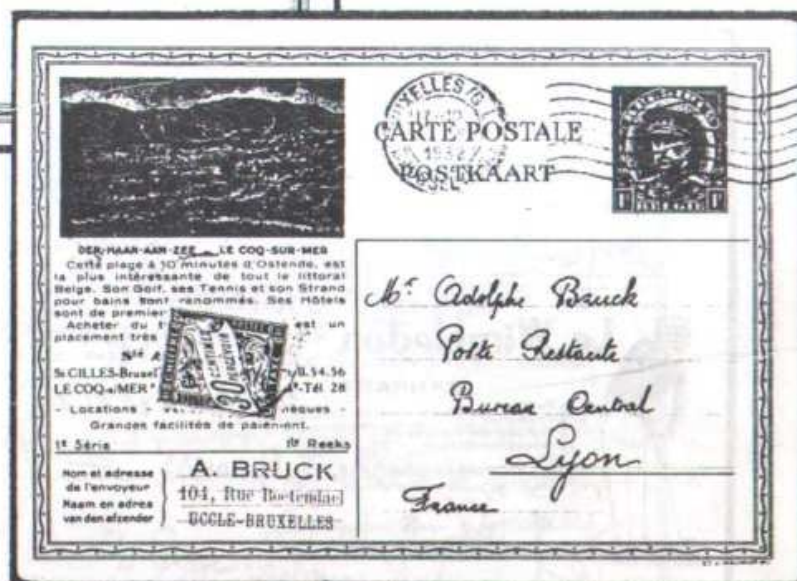 DER-HAAN-AAN-ZEE LE COQ-SUR-MER
Cette plage à 10 minutes d'Ostende, est
la plus intéressante de tout le littoral
Belge. Son Golf, ses Tennis et son Strand
pour bains sont renommés. Ses Hôtels
sont de premier
Acheter du est un
placement très
Sté A
St GILLES-Bruxel 54.56
LE COQ s/MER Tél 28
- Locations -
Grandes facilités de paiement.
1e Série 1e Reeks
Nom et adresse
de l'envoyeur
Naam en adres
van den afzender
A. BRUCK
104, Rue
UCCLE-BRUXELLES
30
CENTIMES
PERCEVOIR
1932
CARTE POSTALE
POSTKAART
Mr Adolphe Bruck
Poste Restante
Bureau Central
Lyon
France